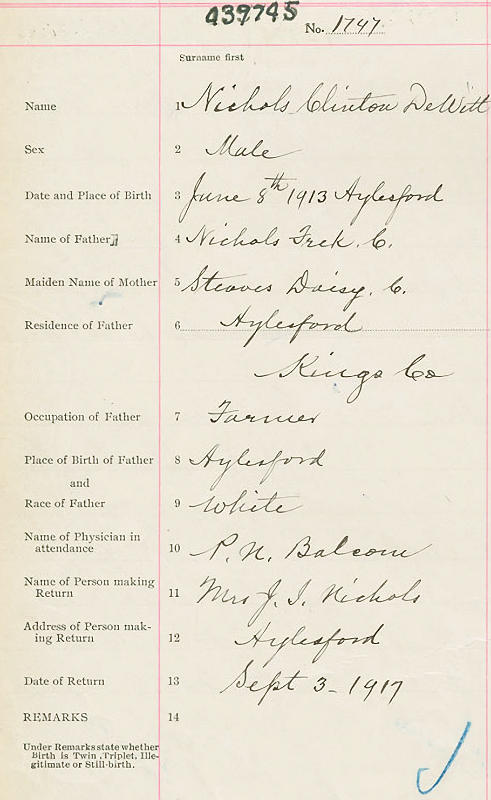 439745
No. 1747
Surname first
Name 1 Nichols Clinton DeWitt
Sex 2 Male
Date and Place of Birth 3 June 8th 1913 Aylesford
Name of Father 4 Nichols Fred. C.
Maiden Name of Mother 5 Steaves Daisy. C.
Residence of Father 6 Aylesford
Kings Co
Occupation of Father 7 Farmer
Place of Birth of Father 8 Aylesford
and
Race of Father 9 White
Name of Physician in
attendance 10 P. N. Balcom
Name of Person making
Return 11 Mrs J. I. Nichols
Address of Person mak-
ing Return 12 Aylesford
Date of Return 13 Sept 3-1917
REMARKS 14
Under Remarks state whether
Birth is Twin, Triplet, Ille-
gitimate or Still-birth.